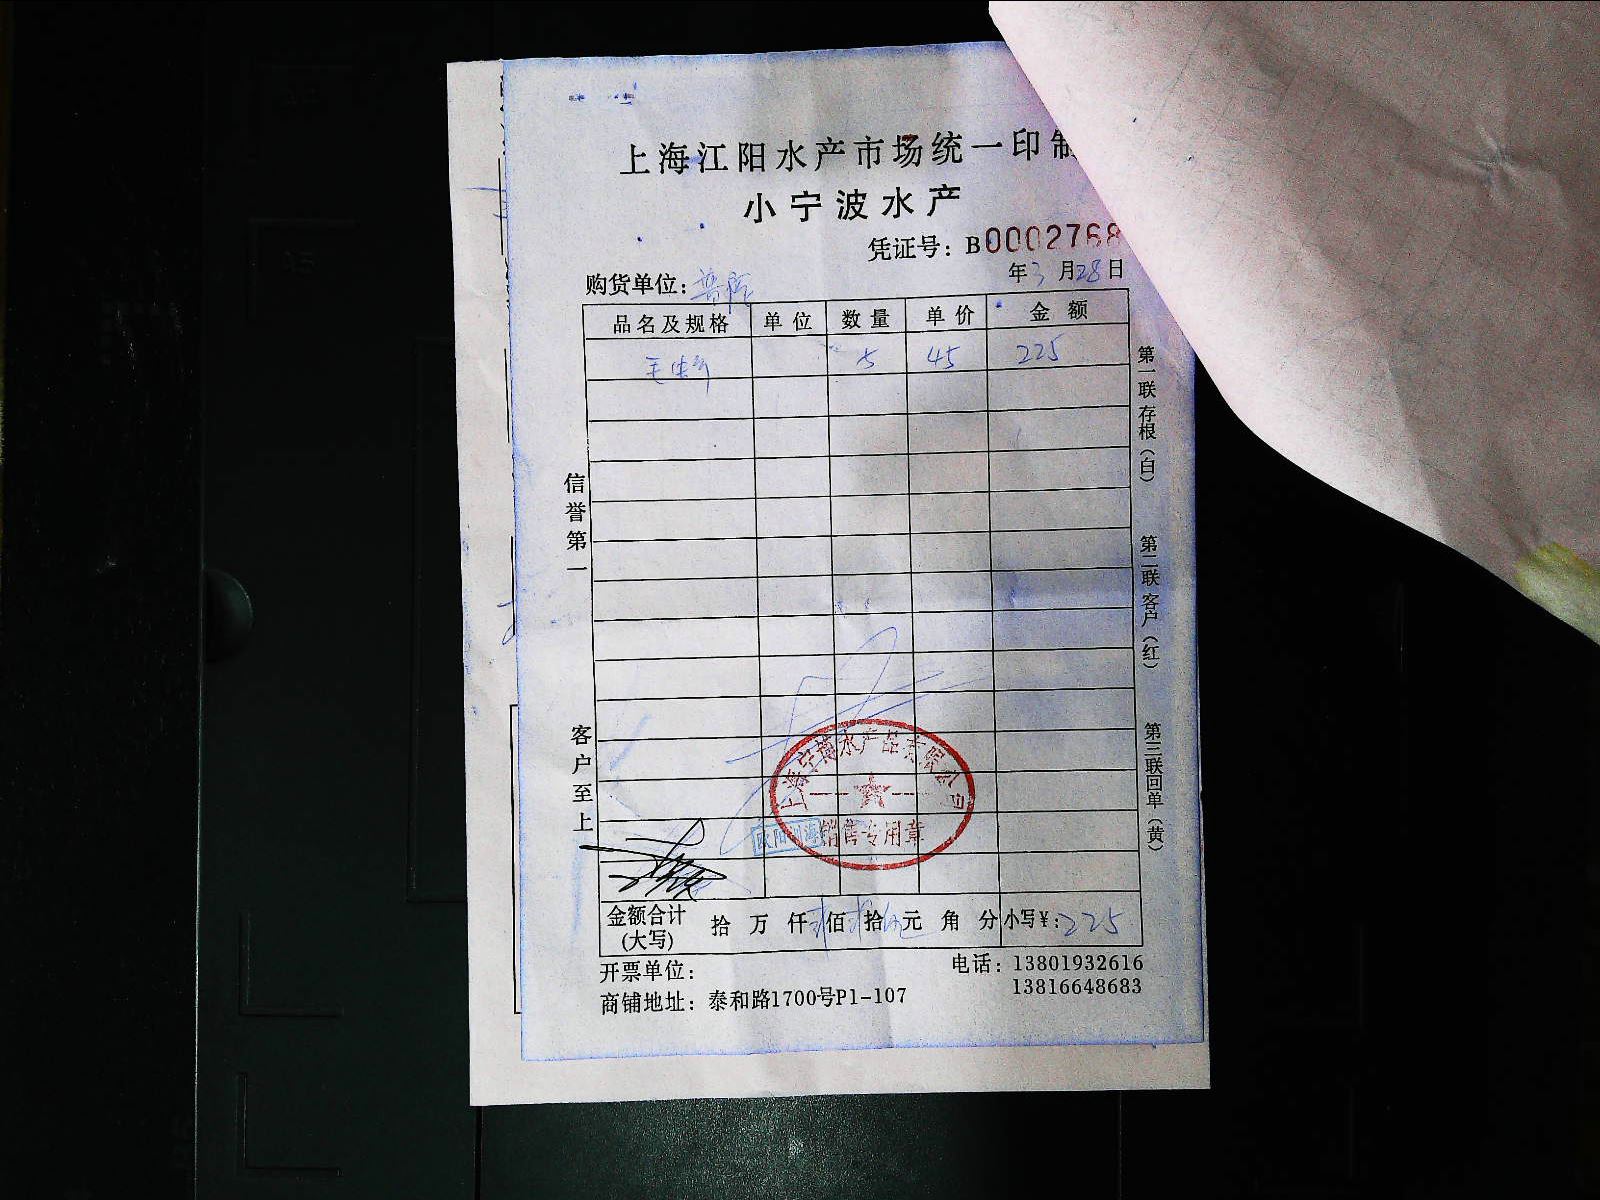 上海江阳水产市场统一印制
小宁波水产
凭证号：B0002768
购货单位：普陀 年3月28日
品名及规格 单位 数量 单价 金额
毛蛤 5 45 225
信誉第一
客户至上
第一联存根（白）
第二联客户（红）
第三联回单（黄）
上海宁博水产品有限公司
销售专用章
金额合计（大写） 拾 万 仟 贰佰 贰拾 伍元 角 分 小写¥：225
开票单位：
电话：13801932616
13816648683
商铺地址：泰和路1700号P1-107